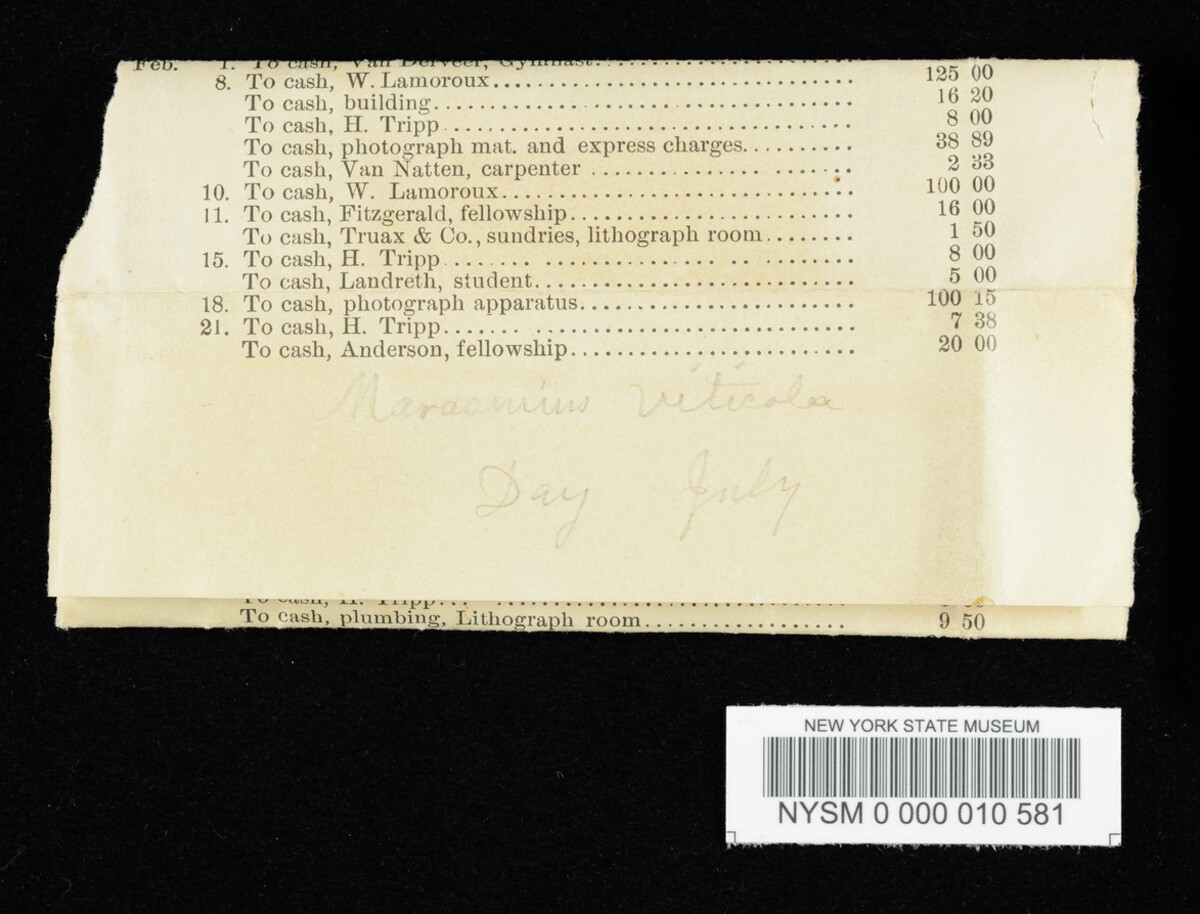 Feb. 1. To cash, Van Derveer, Gymnast.
8. To cash, W. Lamoroux 125 00
To cash, building 16 20
To cash, H. Tripp 8 00
To cash, photograph mat. and express charges 38 89
To cash, Van Natten, carpenter 2 33
10. To cash, W. Lamoroux 100 00
11. To cash, Fitzgerald, fellowship 16 00
To cash, Truax & Co., sundries, lithograph room 1 50
15. To cash, H. Tripp 8 00
To cash, Landreth, student 5 00
18. To cash, photograph apparatus 100 15
21. To cash, H. Tripp 7 38
To cash, Anderson, fellowship 20 00
Marasmius viticola
Day July
To cash, H. Tripp
To cash, plumbing, Lithograph room 9 50
NEW YORK STATE MUSEUM
NYSM 0 000 010 581